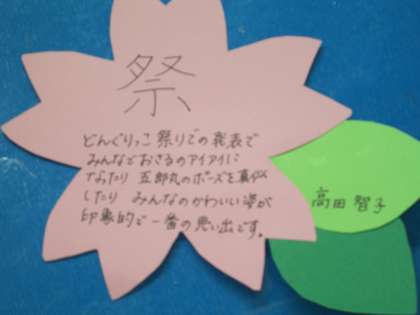 祭
どんぐりっこ祭りでの発表で
みんなでおさるのアイアイに
なったり 五郎丸のポーズを真似
したり みんなのかわいい姿が
印象的で一番の思い出です。
高田智子